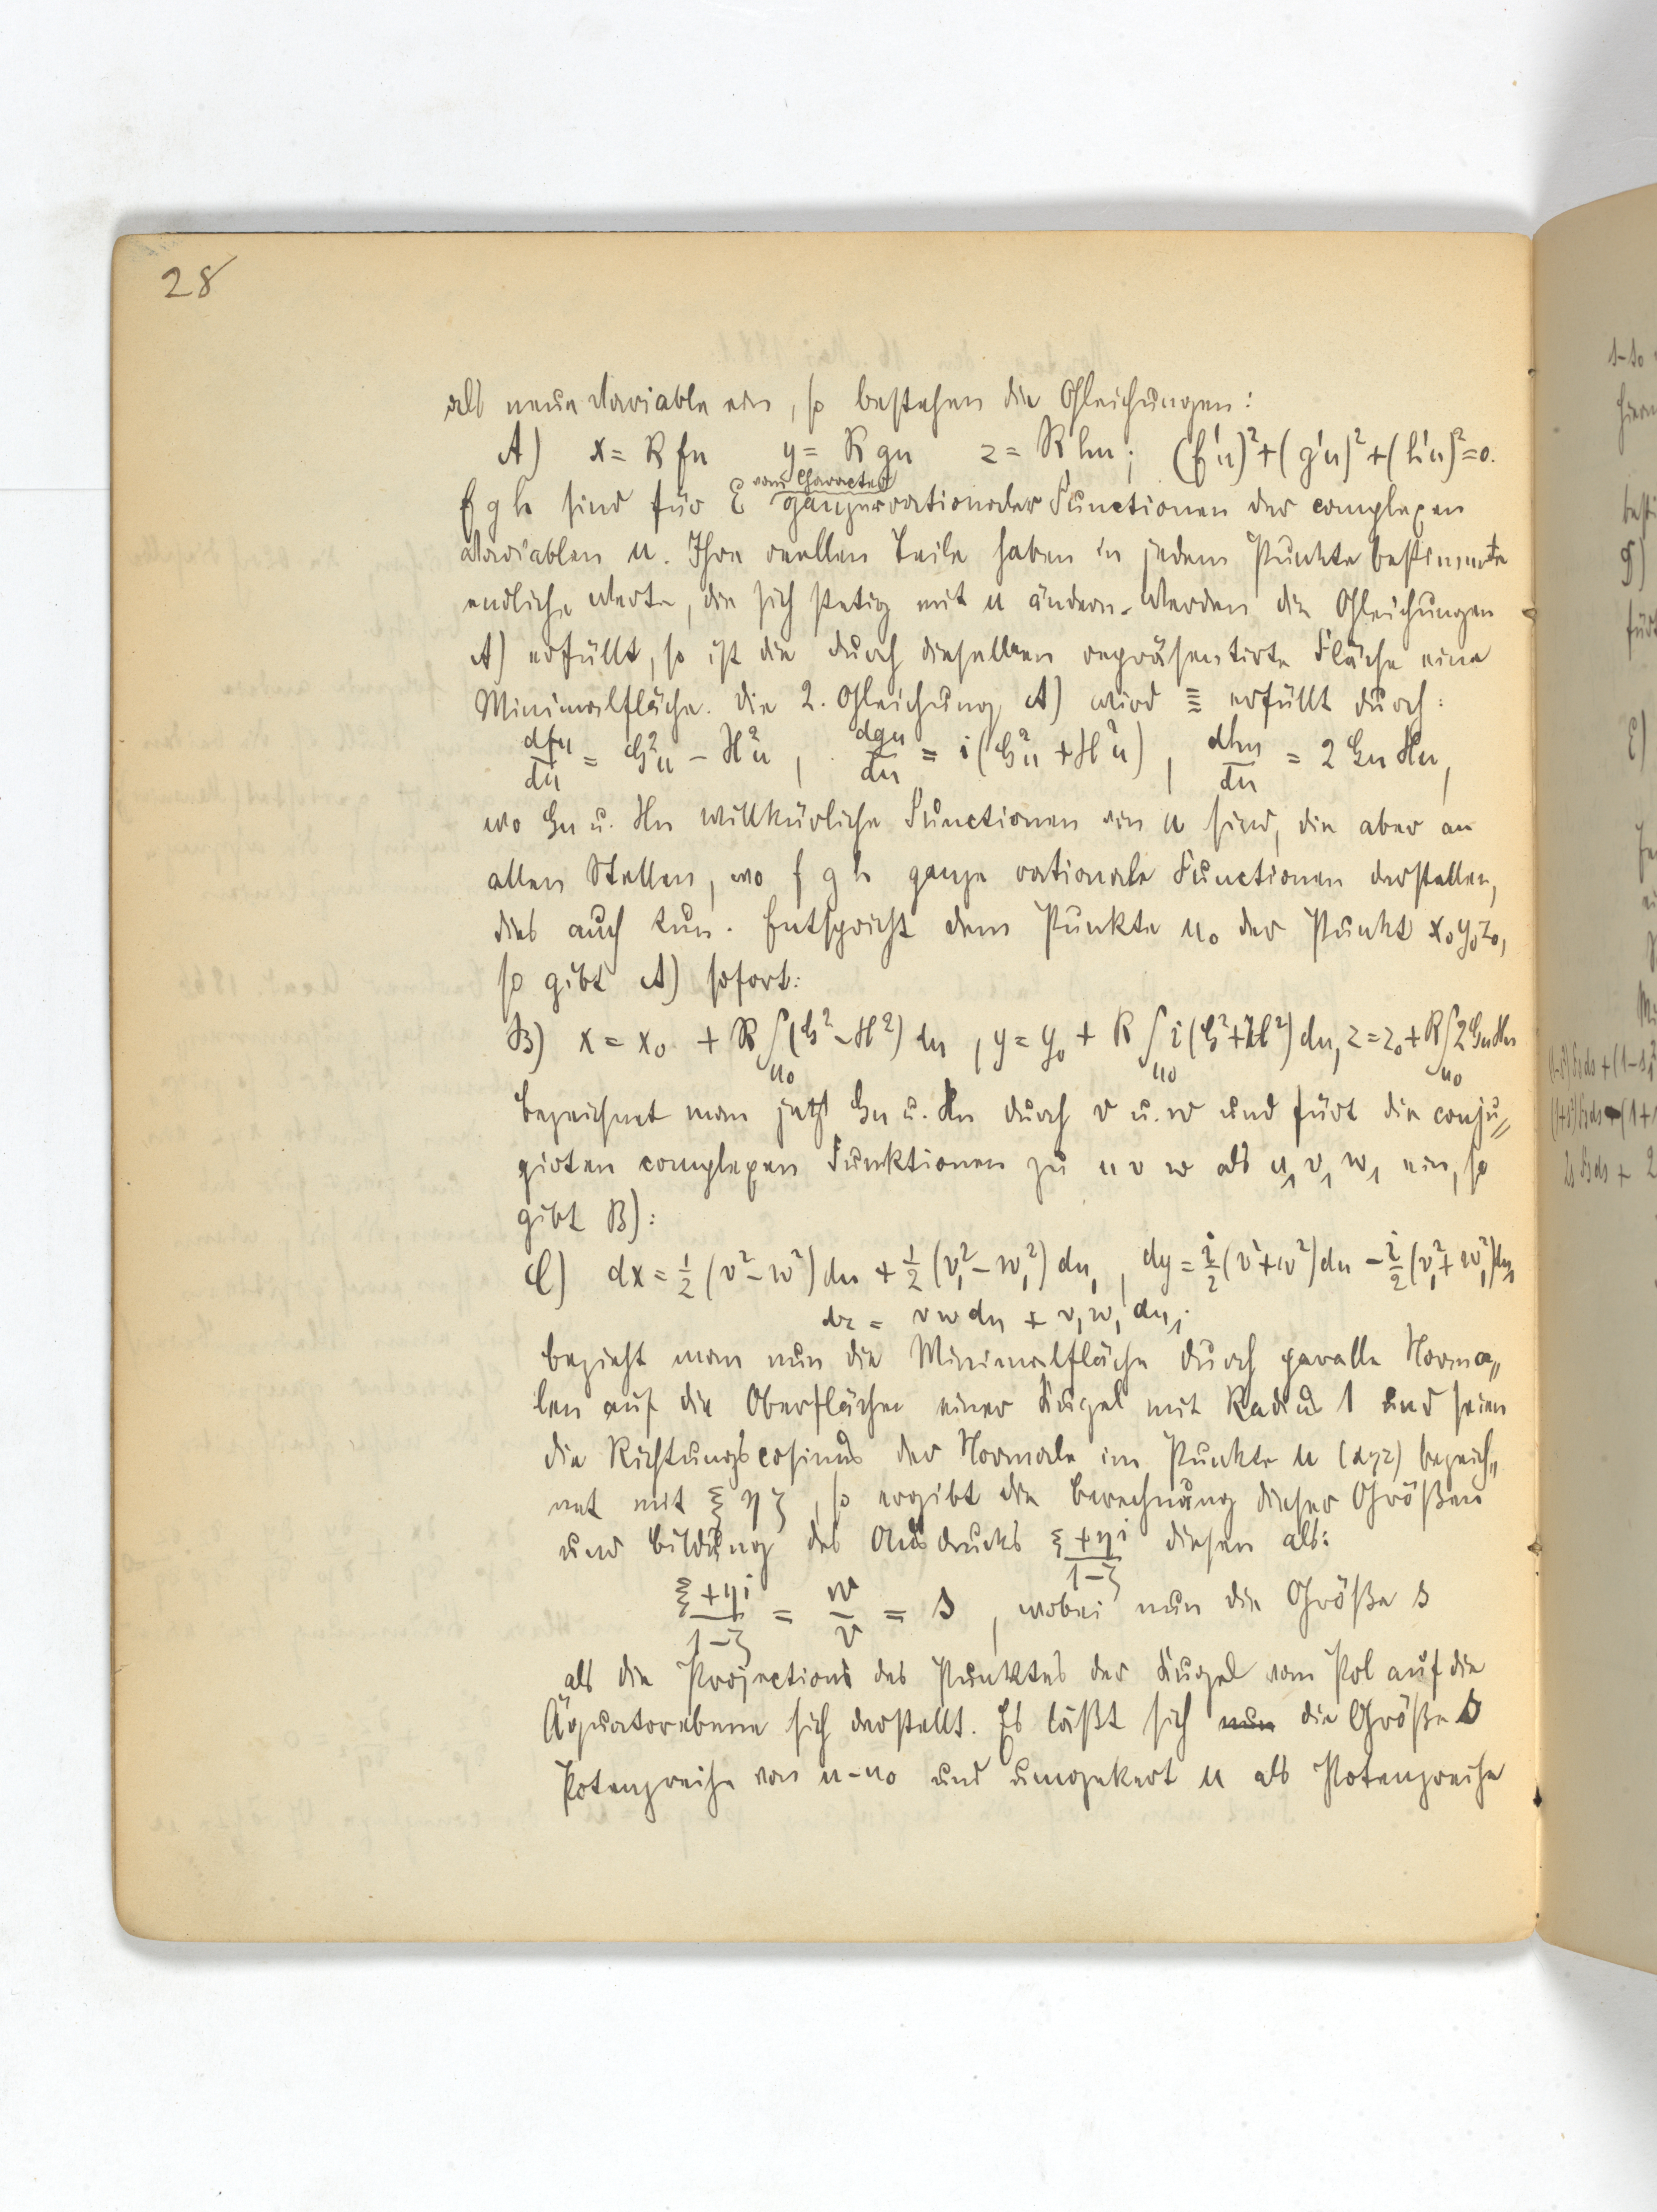 28
als neue Variable ein, so bestehen die Gleichungen:
A) x = R fu   y = R gu   z = R hu; (f'u)²+(g'u)²+(h'u)²=0.
vom Character
f g h sind für ganzer rationaler Functionen der complexen
Variablen u. Ihre reellen Teile haben in jedem Punkte bestimmte
endliche Werte, die sich stetig mit u ändern. Werden die Gleichungen
A) erfüllt, so ist die durch dieselben repräsentirte Fläche eine
Minimalfläche. Die 2. Gleichung A) wird ≡ erfüllt durch:
dfu/du = G²u − H²u, dgu/du = i(G²u + H²u), dhu/du = 2 Gu Hu,
wo Gu u. Hu willkürliche Functionen von u sind, die aber an
allen Stellen, wo f g h ganze rationale Functionen darstellen,
dies auch tun. Entspricht dem Punkte u₀ der Punkt x₀y₀z₀,
so gibt A) sofort:
B) x = x₀ + R∫(G²−H²) du, y = y₀ + R∫i(G²+H²) du, z = z₀ + R∫2GuHu
u₀ u₀ u₀
Bezeichnet man jetzt Gu u. Hu durch v u. w und fürt die conju„
girten complexen Funktionen zu u v w als u₁ v₁ w₁ ein, so
gibt B):
C) dx = ½(v²−w²)du + ½(v₁²−w₁²)du₁, dy = i/2(v²+w²)du − i/2(v₁²+w₁²)du₁
dz = vwdu + v₁w₁du₁.
Bezieht man nun die Minimalfläche durch paralle Norma„
len auf die Oberfläche einer Kugel mit Radius 1 und seien
die Richtungscosinus der Normale im Punkte u (xyz) bezeich„
net mit ξ η ζ, so ergibt die Berechnung dieser Größen
und Bildung des Ausdrucks (ξ+ηi)/(1−ζ) diesen als:
(ξ+ηi)/(1−ζ) = w/v = s, wobei nun die Größe s
als die Projections des Punktes der Kugel vom Pol auf die
Äquatorebene sich darstellt. Es läßt sich nun die Größe s
Potenzreihe von u−u₀ und umgekert u als Potenzreihe